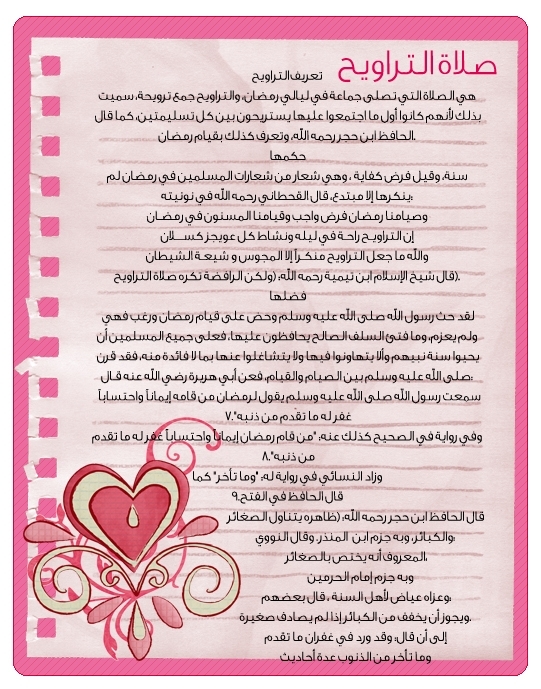 صلاة التراويح
تعريف التراويح
هي الصلاة التي تصلى جماعة في ليالي رمضان، والتراويح جمع ترويحة، سميت
بذلك لأنهم كانوا أول ما اجتمعوا عليها يستريحون بين كل تسليمتين، كما قال
الحافظ ابن حجر رحمه الله، وتعرف كذلك بقيام رمضان.
حكمها
سنة، وقيل فرض كفاية ، وهي شعار من شعارات المسلمين في رمضان لم
ينكرها إلا مبتدع، قال القحطاني رحمه الله في نونيته:
وصيامنا رمضان فرض واجب وقيامنا المسنون في رمضـان
إن التراويح راحة في ليله ونشاط كل عويجز كســـلان
والله ما جعل التراويح منكـراً إلا المجوس و شيعـة الشيطان
(قال شيخ الإسلام ابن تيمية رحمه الله: (ولكن الرافضة تكره صلاة التراويح.
فضلها
لقد حث رسول الله صلى الله عليه وسلم وحض على قيام رمضان ورغب فهي
ولم يعزم، وما فتئ السلف الصالح يحافظون عليها، فعلى جميع المسلمين أن
يحيوا سنة نبيهم وألا يتهاونوا فيها ولا يتشاغلوا عنها بما لا فائدة منه، فقد قرن
صلى الله عليه وسلم بين الصيام والقيام، فعن أبي هريرة رضي الله عنه قال:
سمعت رسول الله صلى الله عليه وسلم يقول لرمضان من قامه إيماناً واحتساباً
غفر له ما تقدم من ذنبه".٧
وفي رواية في الصحيح كذلك عنه: "من قام رمضان إيماناً واحتساباً غفر له ما تقدم
من ذنبه".٨
وزاد النسائي في رواية له: "وما تأخر" كما
قال الحافظ في الفتح.٩
قال الحافظ ابن حجر رحمه الله: (ظاهره يتناول الصغائر
والكبائر، وبه جزم ابن المنذر. وقال النووي:
المعروف أنه يختص بالصغائر،
وبه جزم إمام الحرمين
وعزاه عياض لأهل السنة ، قال بعضهم:
ويجوز أن يخفف من الكبائر إذا لم يصادف صغيرة.
إلى أن قال: وقد ورد في غفران ما تقدم
وما تأخر من الذنوب عدة أحاديث